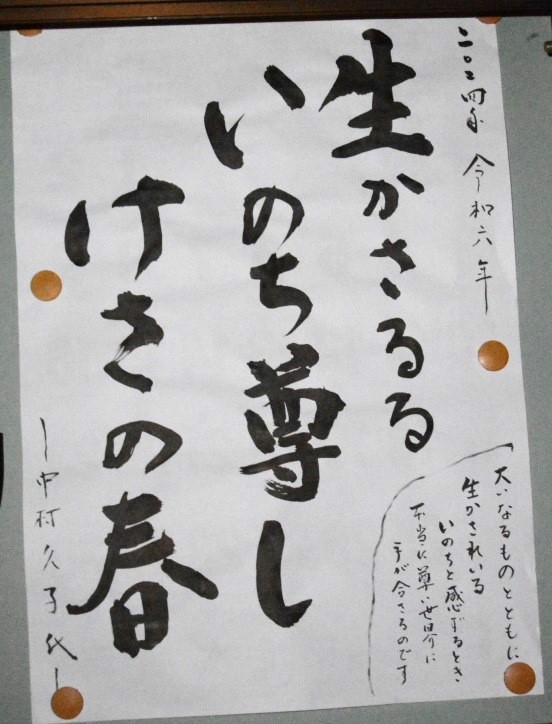 二〇二四年 令和六年
生かさるる
いのち尊し
けさの春
大いなるものとともに
生かされいる
いのちと感ずるとき
本当に尊い世界に
手が合さるのです
中村久子